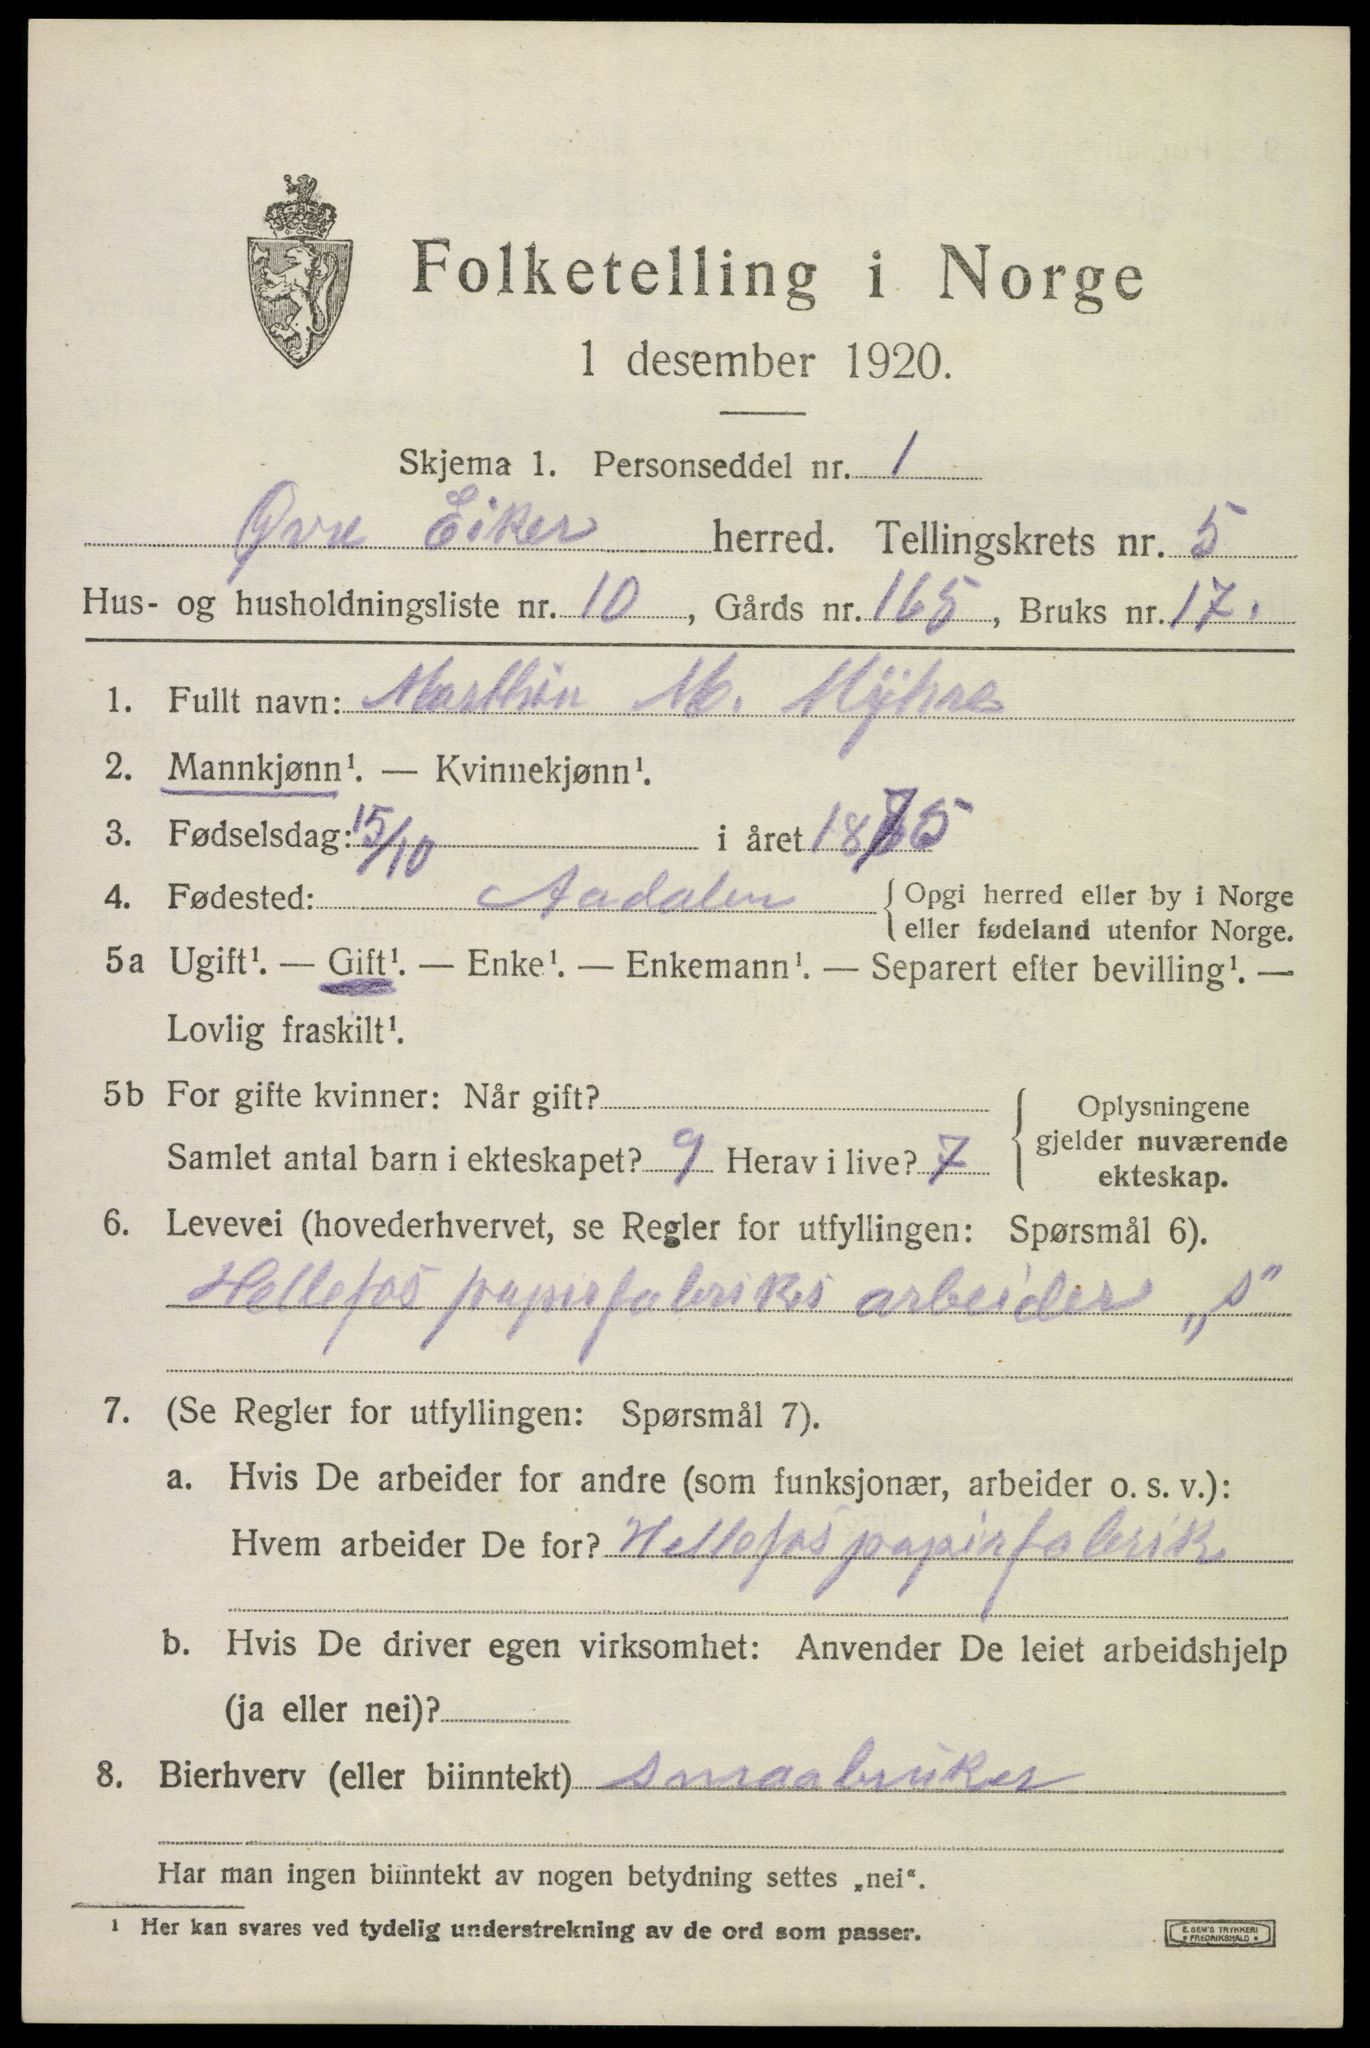 Folketelling i Norge
1 desember 1920.
Skjema 1. Personseddel nr. 1
Øvre Eiker herred. Tellingskrets nr. 5
Hus- og husholdningsliste nr. 10, Gårds nr. 165, Bruks nr. 17.
1. Fullt navn: M. Myhre
2. Mannkjønn¹. — Kvinnekjønn¹.
3. Fødselsdag: 15/10 i året 1875
4. Fødested: Aadalen {Opgi herred eller by i Norge
eller fødeland utenfor Norge.
5a Ugift¹. — Gift¹. — Enke¹. — Enkemann¹. — Separert efter bevilling¹. —
Lovlig fraskilt¹.
5b For gifte kvinner: Når gift?
Samlet antal barn i ekteskapet? 9 Herav i live? 7
{Oplysningene
gjelder nuværende
ekteskap.
6. Levevei (hovederhvervet, se Regler for utfyllingen: Spørsmål 6).
Hellefos papirfabriks arbeider „s"
7. (Se Regler for utfyllingen: Spørsmål 7).
a. Hvis De arbeider for andre (som funksjonær, arbeider o. s. v.):
Hvem arbeider De for? Hellefos papirfabrik
b. Hvis De driver egen virksomhet: Anvender De leiet arbeidshjelp
(ja eller nei)?
8. Bierhverv (eller biinntekt) smaabruker
Har man ingen biinntekt av nogen betydning settes „nei".
¹ Her kan svares ved tydelig understrekning av de ord som passer.
E. SEM'S TRYKKERI
FREDRIKSHALD